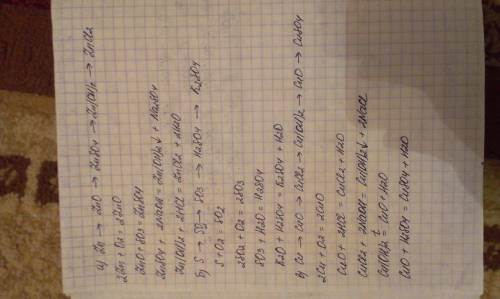 а) Zn → ZnO → ZnSO4 → Zn(OH)2 → ZnCl2
2Zn + O2 = 2ZnO
ZnO + SO3 = ZnSO4
ZnSO4 + 2NaOH = Zn(OH)2↓ + Na2SO4
Zn(OH)2 + 2HCl = ZnCl2 + 2H2O
б) S → SO2 → SO3 → H2SO4 → K2SO4
S + O2 = SO2
2SO2 + O2 = 2SO3
SO3 + H2O = H2SO4
K2O + H2SO4 = K2SO4 + H2O
в) Cu → CuO → CuCl2 → Cu(OH)2 → CuO → CuSO4
2Cu + O2 = 2CuO
CuO + 2HCl = CuCl2 + H2O
CuCl2 + 2NaOH = Cu(OH)2↓ + 2NaCl
Cu(OH)2 t= CuO + H2O
CuO + H2SO4 = CuSO4 + H2O